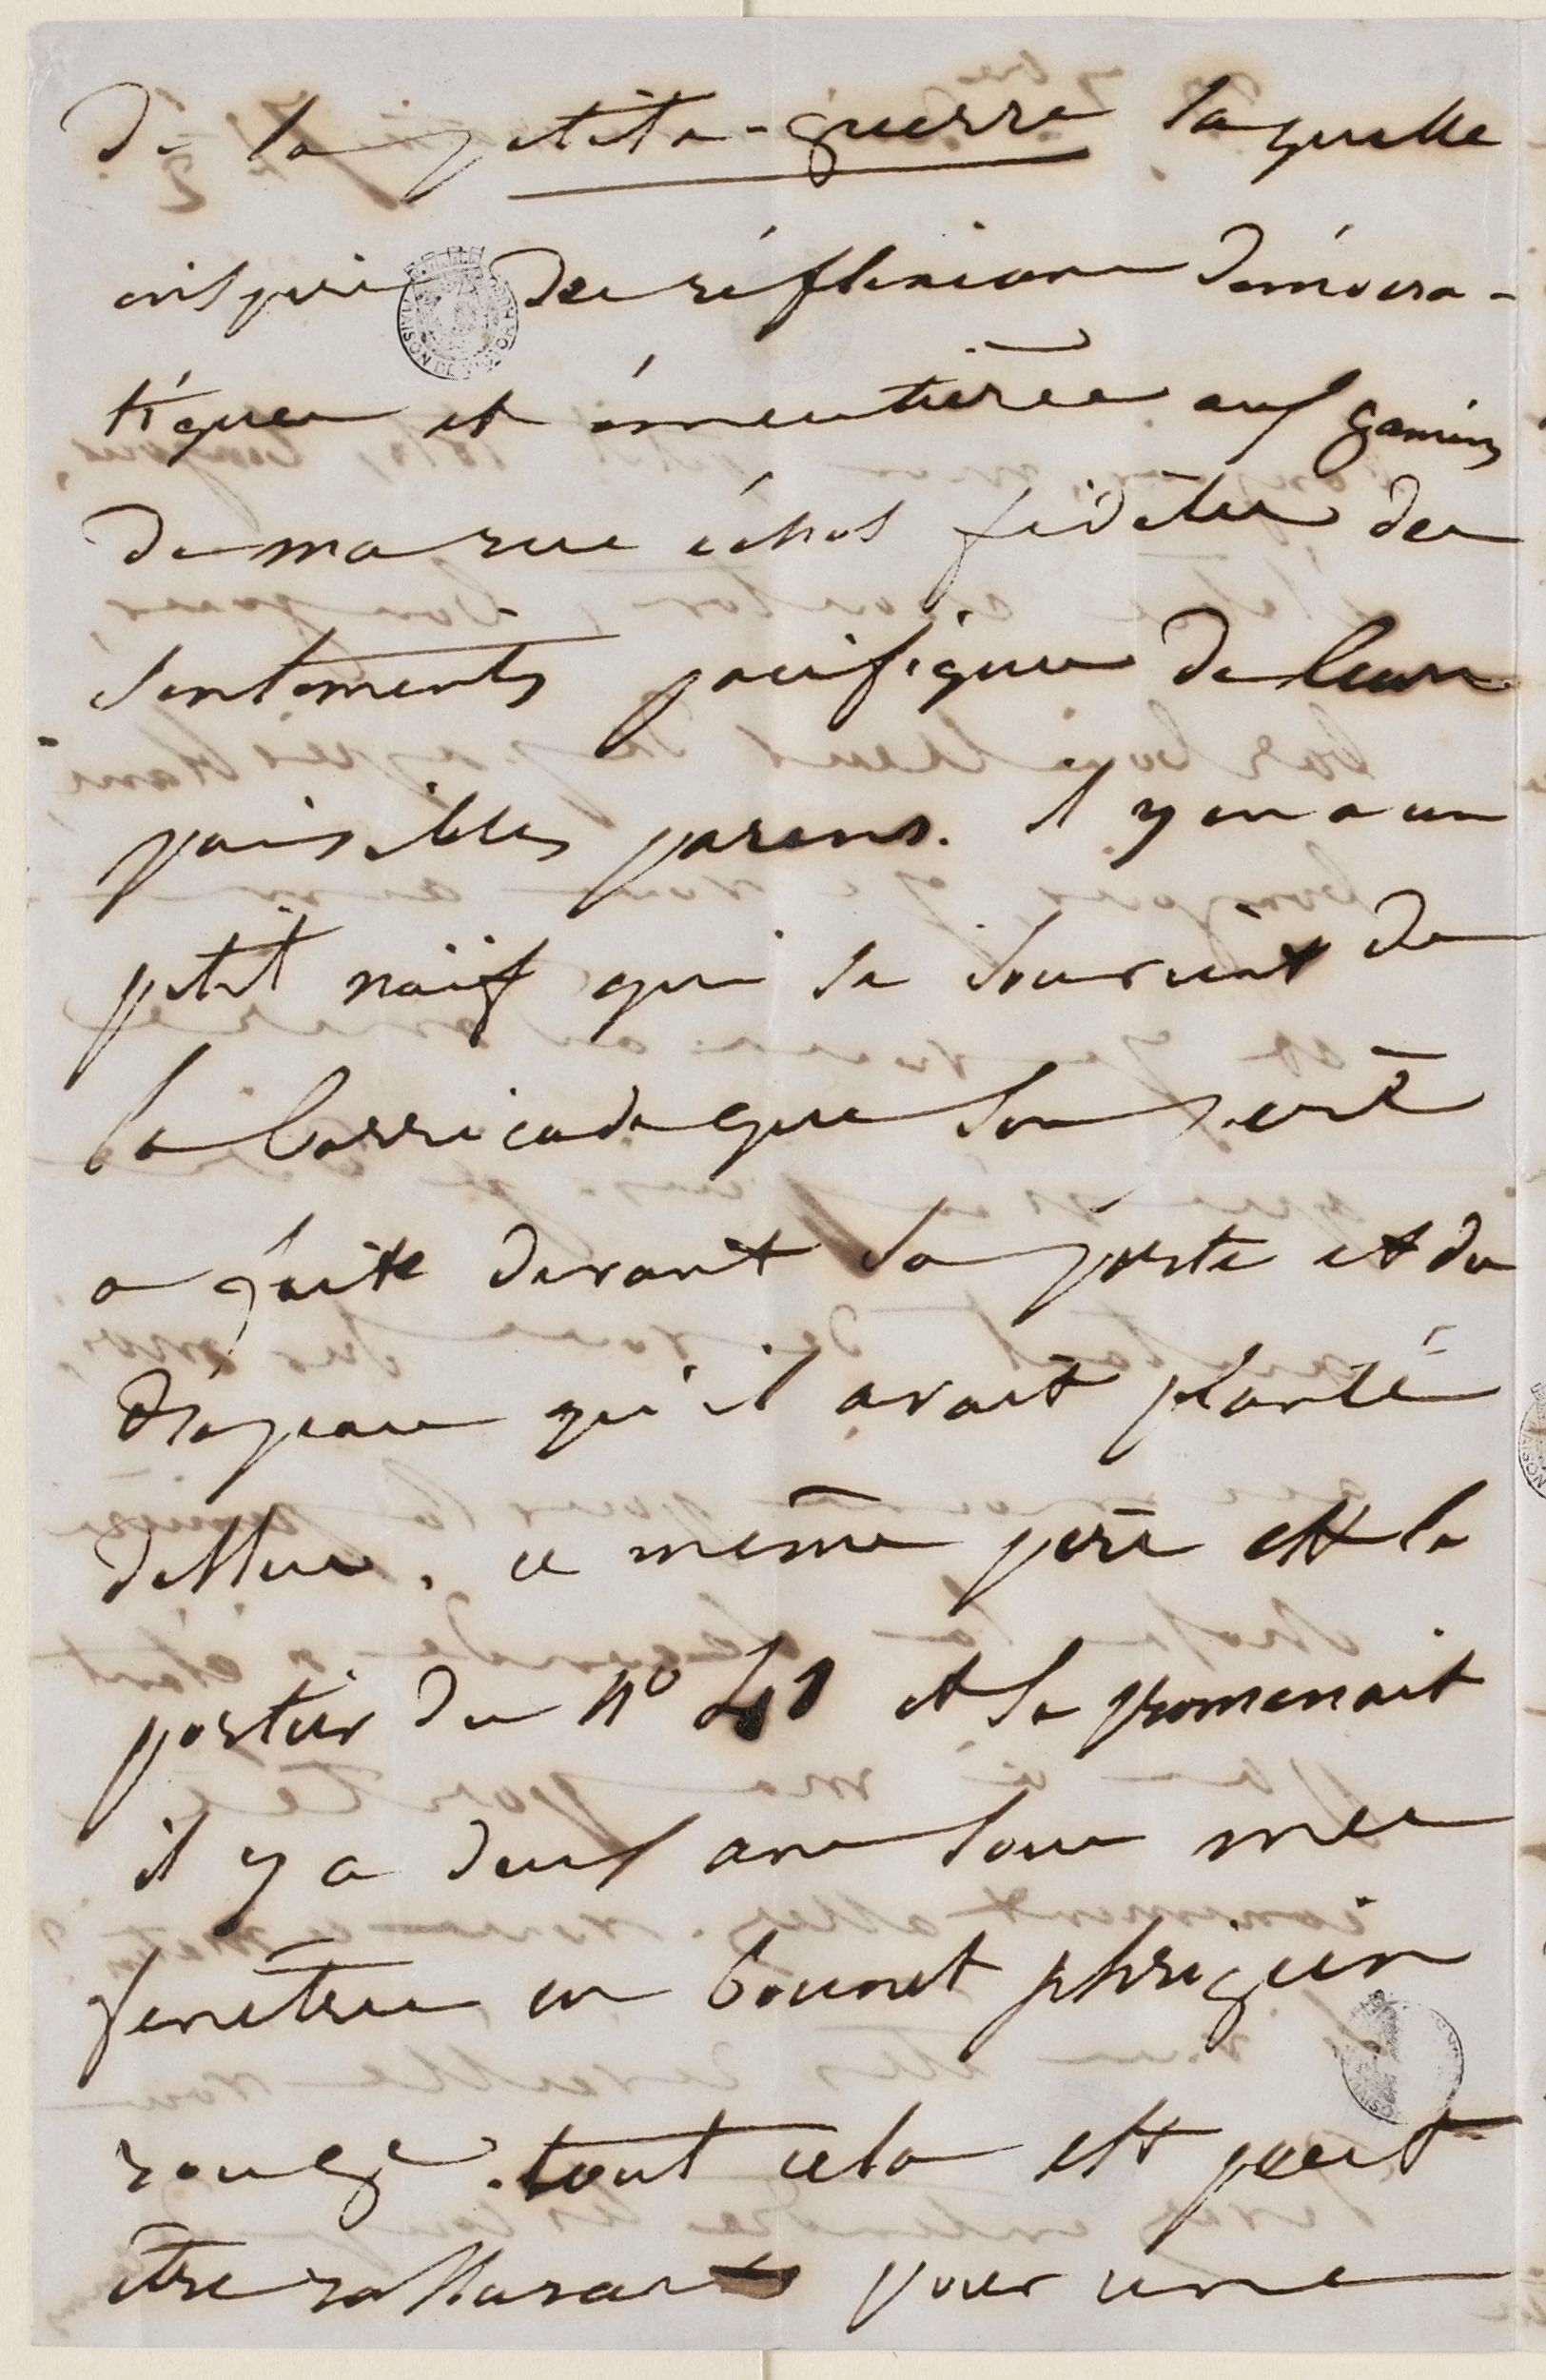 de la petite-guerre laquelle
inspire des réflexions démocra-
tiques et émeutières aux gamins
de ma rue échos fidèles des
sentiments pacifiques de leurs
paisibles parens. Il y en a un
petit naïf qui se souvient de
la barricade que son père
a faite devant sa porte et du
drapeau qu'il avait planté
dessus. ce même père est le
portier du nº 41 et se promenait
il y a deux ans sous mes
fenêtres en bonnet phrigien
rouge. tout cela est peut
être rassurant pour une